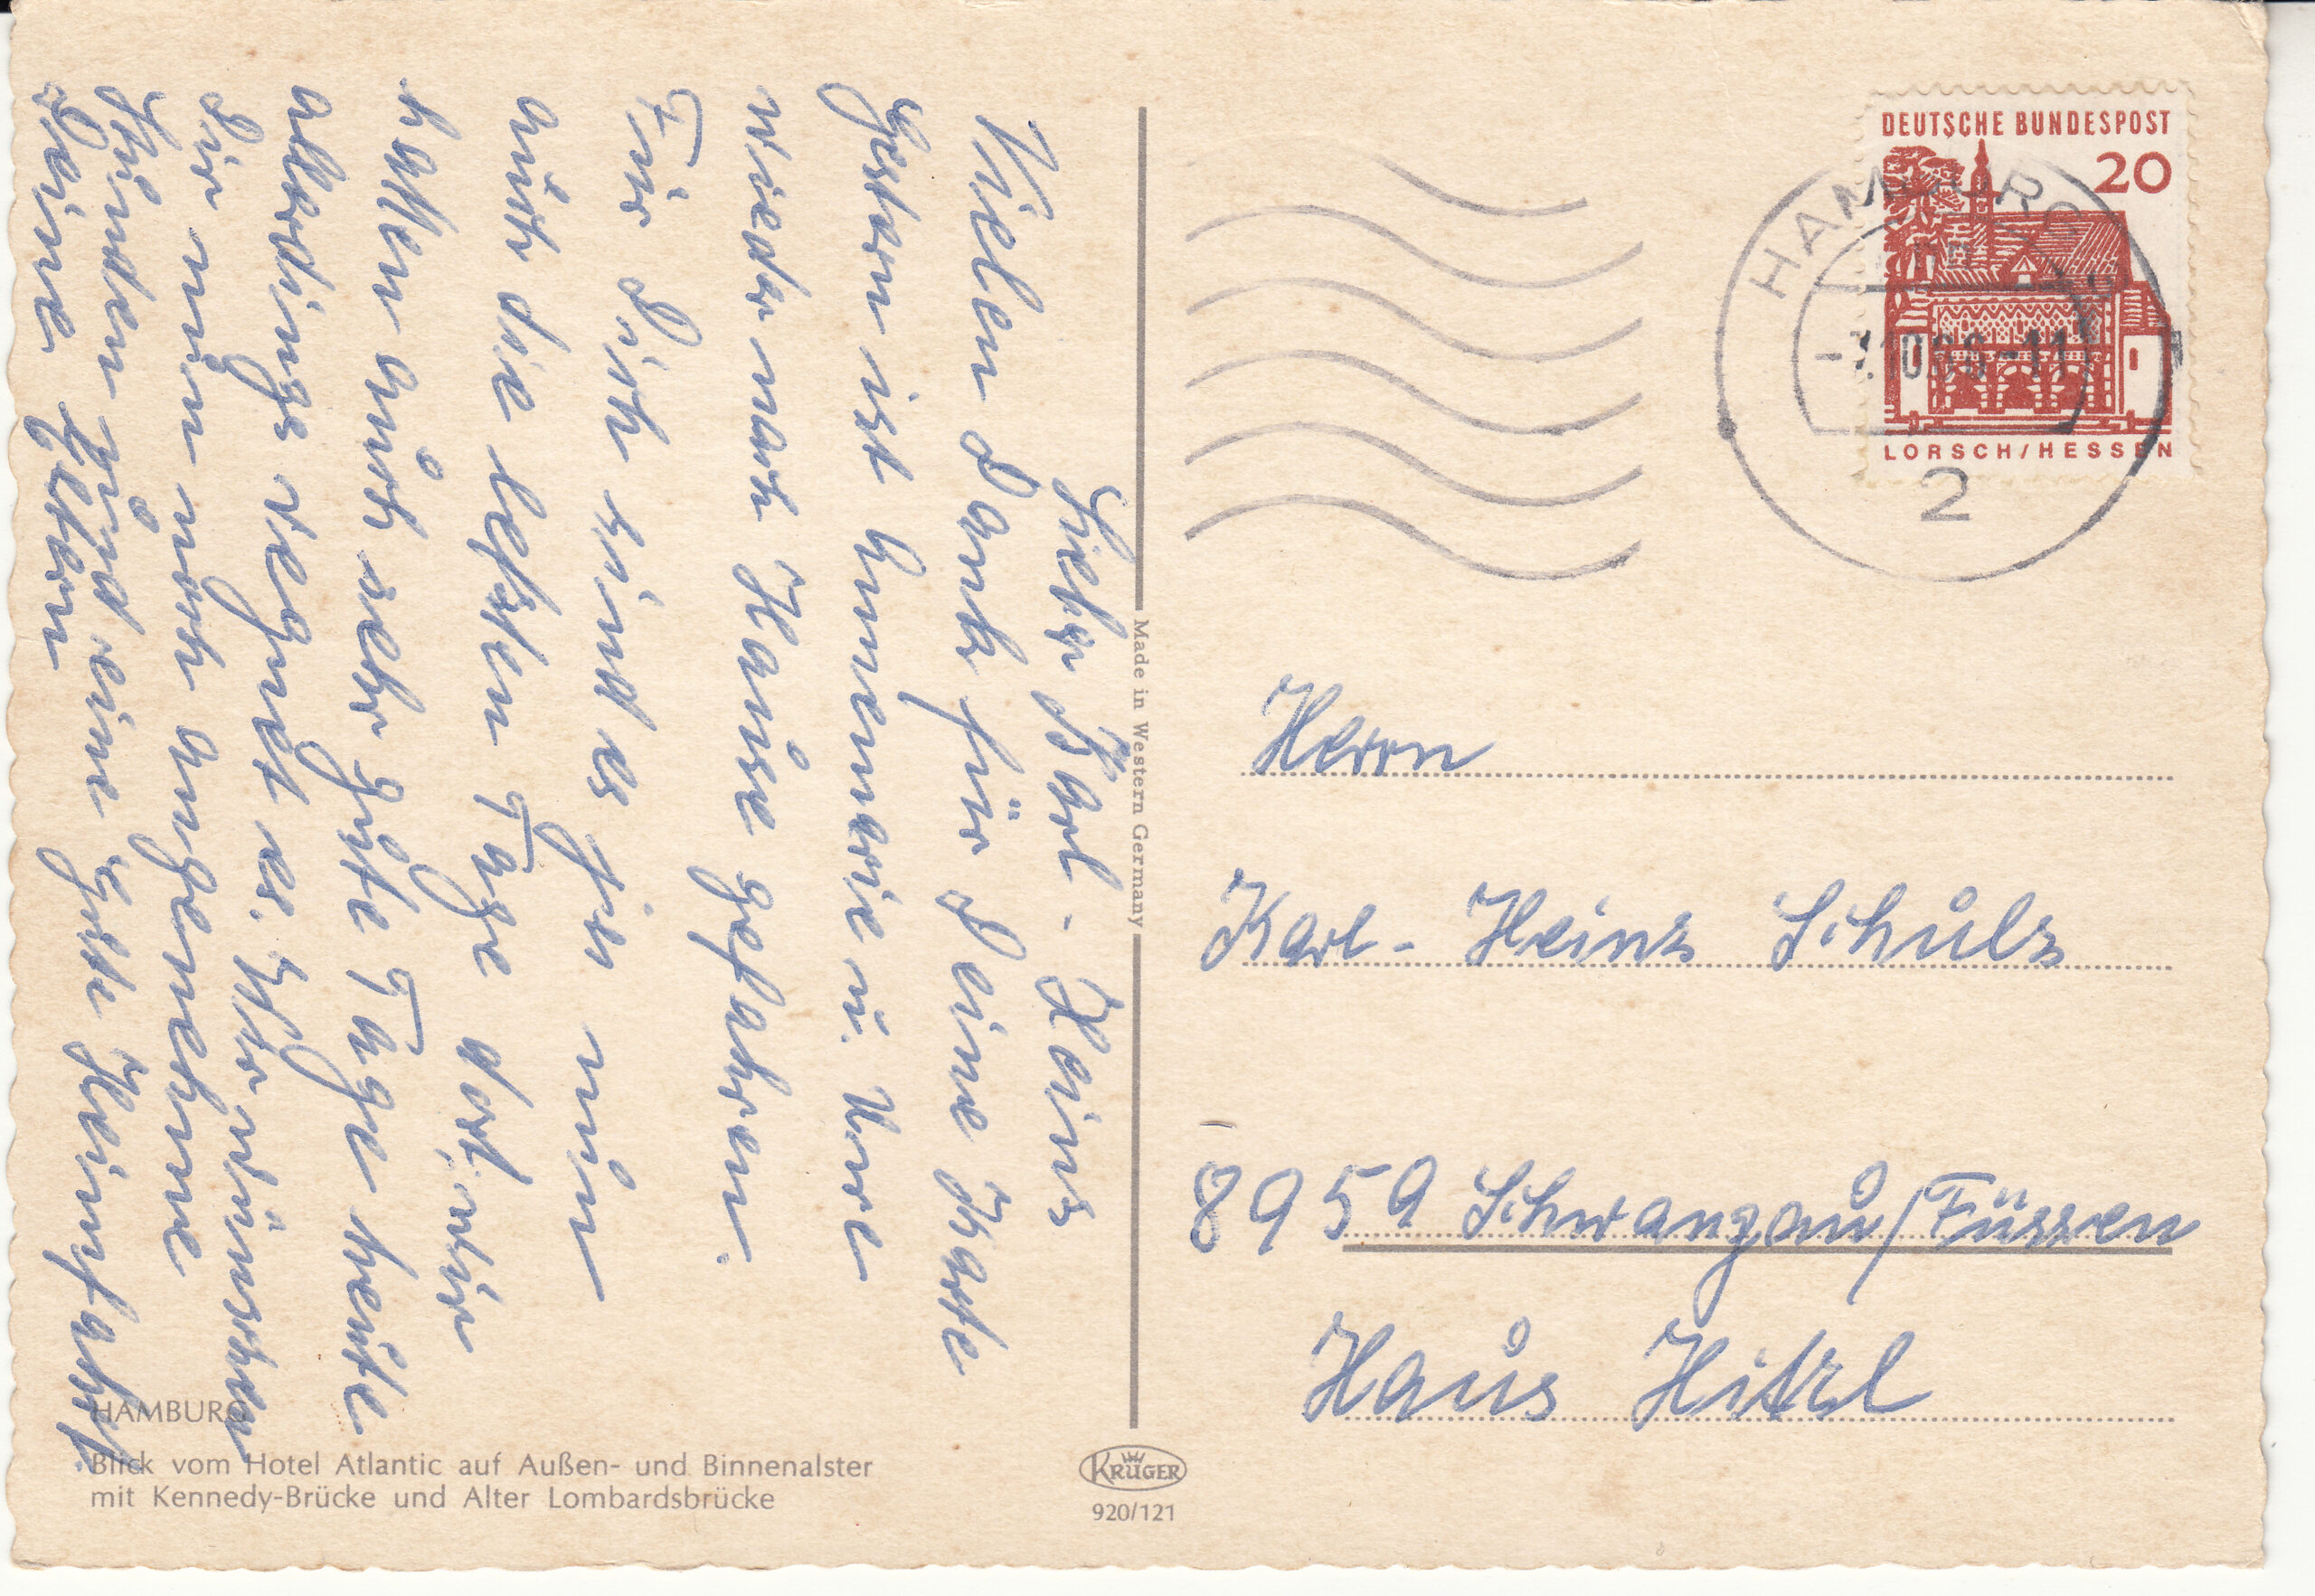 Lieber Karl-Heinz
Vielen Dank für Deine Karte
Gestern ist Annemarie u.
wieder nach Hause gefahren.
Für Dich sind es ja nun
auch die letzten Tage dort. wir
hatten auch sehr gute Tage heute
allerdings regnet es. Wir wünschen
dir nun noch angenehme
Stunden und eine gute Heimfahrt
Deine Eltern
Made in Western Germany
HAMBURG
Blick vom Hotel Atlantic auf Außen- und Binnenalster
mit Kennedy-Brücke und Alter Lombardsbrücke
KRÜGER
920/121
DEUTSCHE BUNDESPOST
20
LORSCH/HESSEN
HAMBURG
10.66-11
2
Herrn
Karl-Heinz Schulz
8959 Schwangau/Füssen
Haus Hitzl